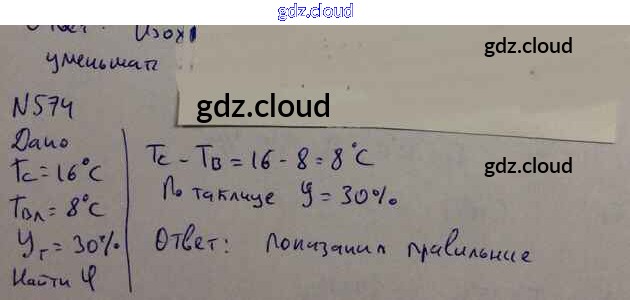 gdz.cloud
Ответ: Изох
gdz.cloud
уменьшат
gdz.cloud
N574
Дано
Tc = 16°C
Tвл = 8°C
Yг = 30%
Найти φ
Tc - Tв = 16 - 8 = 8°C
По таблице y = 30%
gdz.cloud
Ответ: показания правильние